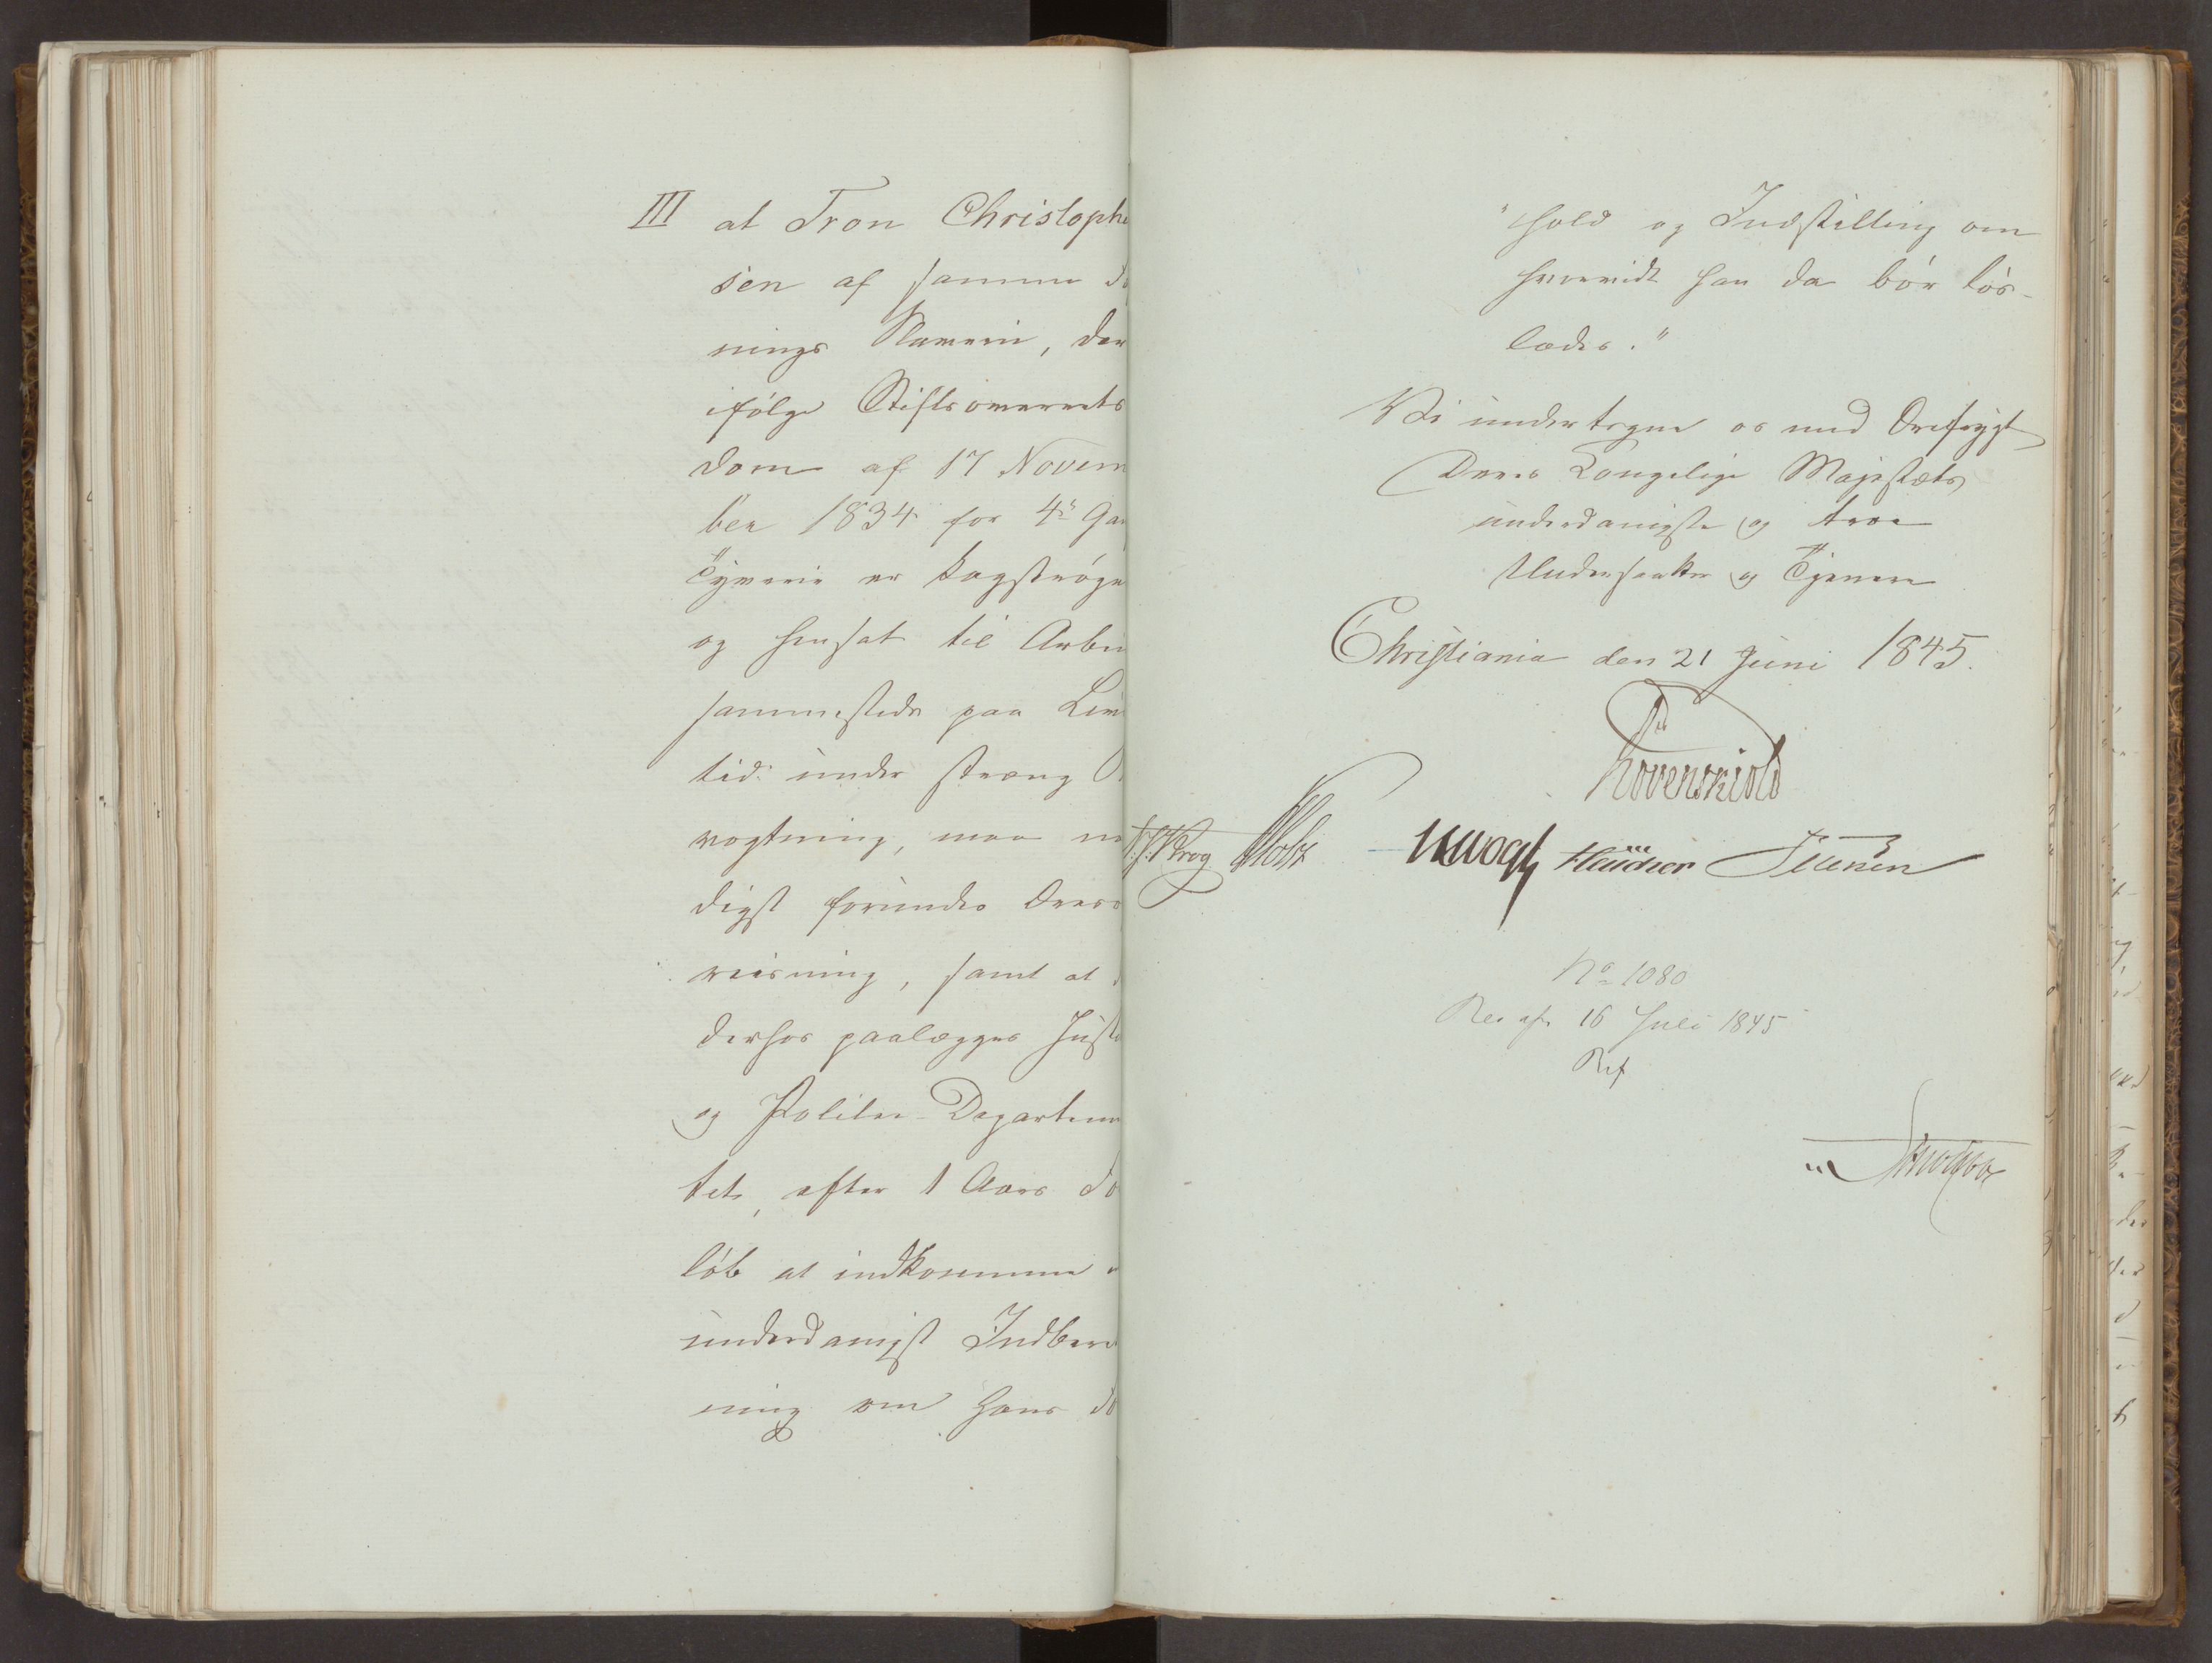 III at Tron Christophe
sen af samme S
nings Slaverie, der
ifølge Stiftsoverrets
dom af 17 Novem
ber 1834 for 4de Ga
Tyverie er kagstrøge
og hensat til Arbei
sammesteds paa Livs
tid under streng
vogtning, maa
digst forundes Over
viisning, samt at
derhos paalægges Just
og Politie-Departem
tet, efter 1 Aars
løb at indkomme
underdanigst Indbere
ning om hans
"hold og Indstilling om
hvorvidt han da bør løs-
lades."
Vi undertegne os med Ærefrygt
Deres Kongelige Majestæts
underdanigste og troe
Undersaatter og Tjenere
Christiania den 21 Juni 1845.
Løvenskiold
Krog Holst Vogt
No 1080
Res af 16 Juli 1845
Ref